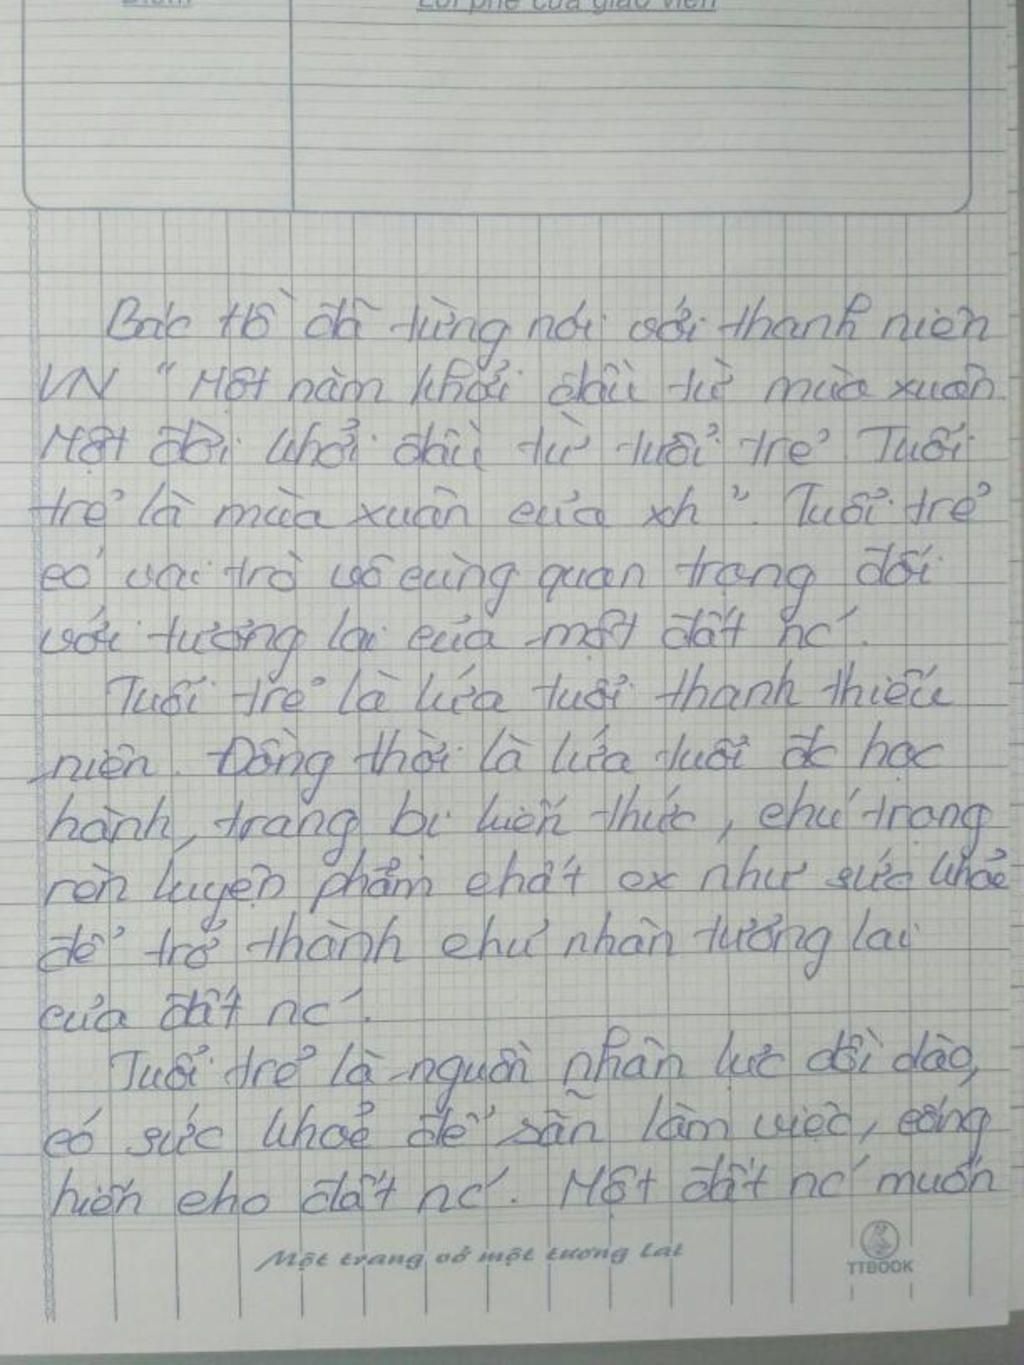 Điểm
Lời phê của giáo viên
Bác Hồ đã từng nói với thanh niên
VN "Một năm khởi đầu từ mùa xuân
Một đời khởi đầu từ tuổi trẻ Tuổi
trẻ là mùa xuân của xh". Tuổi trẻ
có vai trò vô cùng quan trọng đối
với tương lai của một đất nc'.
Tuổi trẻ là lứa tuổi thanh thiếu
niên. Đồng thời là lứa tuổi đc học
hành, trang bị kiến thức, chú trọng
rèn luyện phẩm chất cx như sức khoẻ
để trở thành chủ nhân tương lai
của đất nc'.
Tuổi trẻ là nguồn nhân lực dồi dào,
có sức khoẻ để sẵn làm việc, cống
hiến cho đất nc'. Một đất nc' muốn
Một trang vở một tương lai
TTBOOK